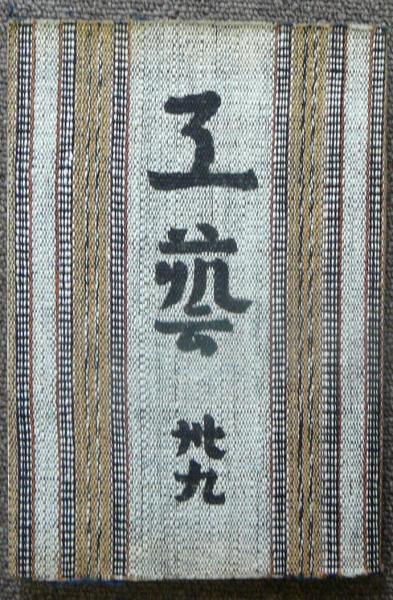 工藝
卅九